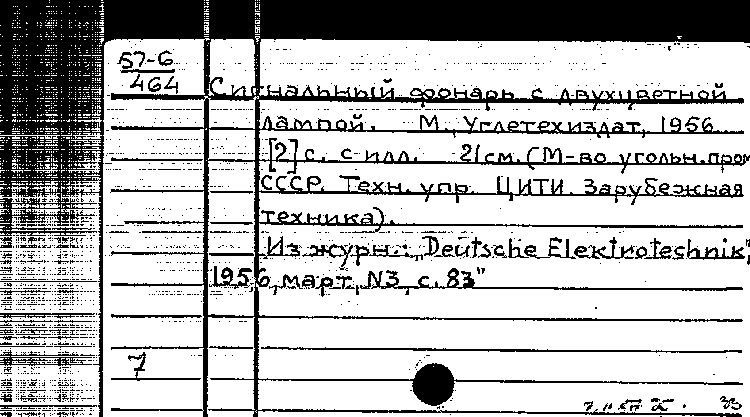 57-6
464
Сигнальный фонарь с двухцветной
лампой. М., Углетехиздат, 1956
[2] с. с илл. 21 см. (М-во угольн. пром
СССР. Техн. упр. ЦИТИ. Зарубежная
техника).
Из журн.: „Deutsche Elektrotechnik",
1956, март, N3, с. 83"
7